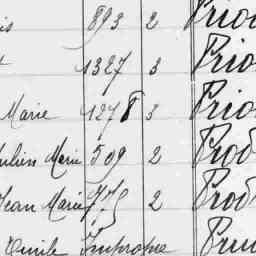 is 893 2 Prio
1327 3 Prio
Marie 1278 3 Prio
ulien Marie 509 2 Prod
Jean Marie 775 2 Prod
Emile Impropre